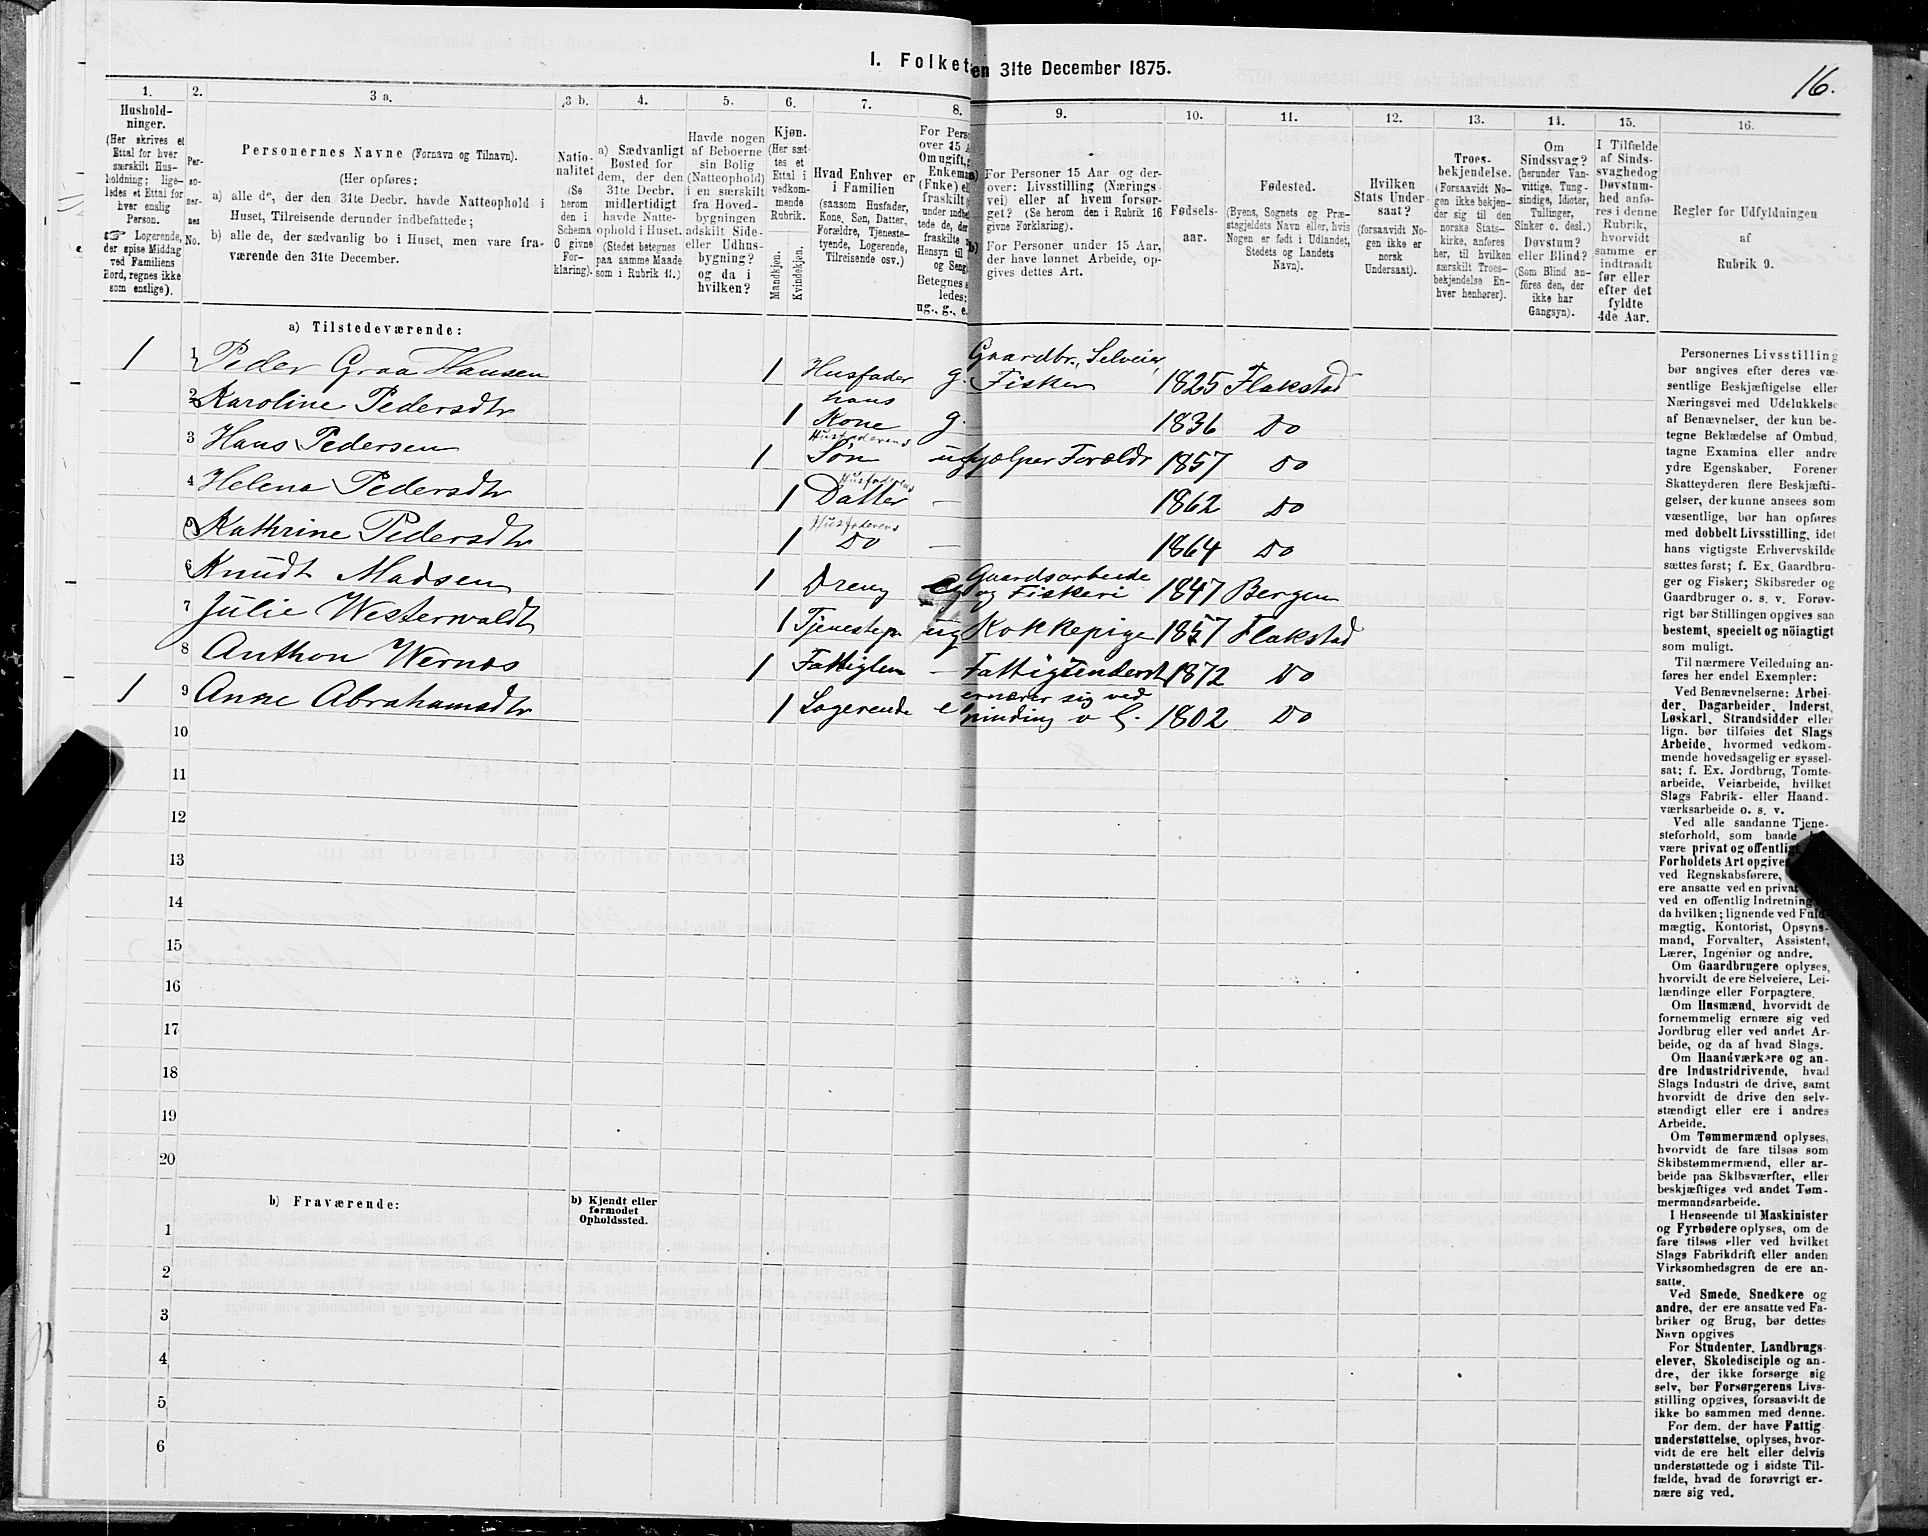 16.
I. Folket en 31te December 1875.
1. 2. 3 a. 3 b. 4. 5. 6. 7. 8. 9. 10. 11. 12. 13. 14. 15. 16.
Hushold-
ninger.
(Her skrives et
Ettal for hver
særskilt Hus-
holdning; lige-
ledes et Ettal for
hver enslig
Person.
☞ Logerende,
der spise Middag
ved Familiens
Bord, regnes ikke
som enslige).
Per-
so-
ner-
nes
No.
Personernes Navne (Fornavn og Tilnavn).
(Her opføres:
a) alle de, der den 31te Decbr. havde Natteophold i
Huset, Tilreisende derunder indbefattede;
b) alle de, der sædvanlig bo i Huset, men vare fra-
værende den 31te December.
Natio-
nalitet
(Se
herom
den i
Schema
O givne
For-
klaring).
a) Sædvanligt
Bosted for
dem, der den
31te Decbr.
midlertidigt
havde Natte-
ophold i Huset.
(Stedet betegnes
paa samme Maade
som i Rubrik 11.)
Havde nogen
af Beboerne
sin Bolig
(Natteophold)
i en særskilt
fra Hoved-
bygningen
adskilt Side-
eller Udhus-
bygning?
og da i
hvilken?
Kjøn.
(Her sæt-
tes et
Ettal i
vedkom-
mende
Rubrik.
Mandkjøn.
Kvindekjøn.
Hvad Enhver er
i Familien
(saasom Husfader,
Kone, Søn, Datter,
Forældre, Tjeneste-
tyende, Logerende,
Tilreisende osv.)
For Pers
over 15 A
Om ugift,
Enkema
(Enke) e
fraskilt
under indbe
tede de, de
fraskilte
Hensyn til
og Seng
Betegnes s
ledes:
ug., g., e.
a) For Personer 15 Aar og der-
over: Livsstilling (Nærings-
vei) eller af hvem forsør-
get? (Se herom den i Rubrik 16
givne Forklaring).
b) For Personer under 15 Aar,
der have lønnet Arbeide, op-
gives dettes Art.
Fødsels-
aar.
Fødested.
(Byens, Sognets og Præ-
stegjeldets Navn eller, hvis
Nogen er født i Udlandet,
Stedets og Landets
Navn).
Hvilken
Stats Under-
saat?
(forsaavidt No-
gen ikke er
norsk
Undersaat).
Troes-
bekjendelse.
(Forsaavidt No-
gen ikke bekjen-
der sig til den
norske Stats-
kirke, anføres
her, til hvilken
særskilt Troes-
bekjendelse En-
hver henhører).
Om
Sindssvag?
(herunder Van-
vittige, Tung-
sindige, Idioter,
Tullinger,
Sinker o. desl.)
Døvstum?
eller Blind?
(Som Blind an-
føres den, der
ikke har
Gangsyn).
I Tilfælde
af Sinds-
svaghed og
Døvstum-
hed anfø-
res i denne
Rubrik,
hvorvidt
samme er
indtraadt
før eller
efter det
fyldte
4de Aar.
Regler for Udfyldningen
af
Rubrik 9.
a) Tilstedeværende:
1 1 Peder Graa Hansen 1 Husfader g. Gaardbr., Selveier, Fisker 1825 Flakstad
2 Karoline Pedersdtr 1 hans Kone g. 1836 Do
3 Hans Pedersen 1 Husfaderens Søn ug hjælper Foreldr 1857 Do
4 Helena Pedersdtr 1 Husfaderens Datter - 1862 Do
5 Kathrine Pedersdtr 1 Husfaderens Do - 1864 Do
6 Knudt Madsen 1 Dreng Gaardsarbeide og Fiskeri 1847 Bergen
7 Julie Westerwaldt 1 Tjenestep. ug Kokkepige 1857 Flakstad
8 Anthon Wernos 1 Fattiglem - Fattigunderst 1872 Do
1 9 Anne Abrahamsdtr 1 Logerende e ernærer sig ved 1802 Do
10
11
12
13
14
15
16
17
18
19
20
b) Fraværende:
b) Kjendt eller
formodet
Opholdssted.
1
2
3
4
5
6
Personernes Livsstilling
bør angives efter deres væ-
sentlige Beskjæftigelse eller
Næringsvei med Udelukkelse
af Benævnelser, der kun be-
tegne Beklædelse af Ombud,
tagne Examina eller andre
ydre Egenskaber. Forener
Skatteyderen flere Beskjæfti-
gelser, der kunne ansees som
væsentlige, bør han opføres
med dobbelt Livsstilling, idet
hans vigtigste Erhvervskilde
sættes først; f. Ex. Gaardbru-
ger og Fisker; Skibsreder og
Gaardbruger o. s. v. Forøv-
rigt bør Stillingen opgives saa
bestemt, specielt og nöiagtigt
som muligt.
Til nærmere Veiledning an-
føres her endel Exempler:
Ved Benævnelserne: Arbei-
der, Dagarbeider, Inderst,
Løskarl, Strandsidder eller
lign. bør tilføies det Slags
Arbeide, hvormed vedkom-
mende hovedsagelig er syssel-
sat; f. Ex. Jordbrug, Tomte-
arbeide, Veiarbeide, hvilket
Slags Fabrik- eller Haand-
værksarbeide o. s. v.
Ved alle saadanne Tjene-
steforhold, som baade
være privat og offentlig
Forholdets Art opgives
ved Regnskabsførere,
ere ansatte ved en privat
ved en offentlig Indretning
da hvilken; lignende ved Fuld-
mægtig, Kontorist, Opsyns-
mand, Forvalter, Assistent,
Lærer, Ingeniør og andre.
Om Gaardbrugere oplyses,
hvorvidt de ere Selveiere, Lei-
lændinge eller Forpagtere.
Om Husmænd, hvorvidt de
fornemmelig ernære sig ved
Jordbrug eller ved andet Ar-
beide, og da af hvad Slags.
Om Haandværkere og an-
dre Industridrivende, hvad
Slags Industri de drive, samt
hvorvidt de drive den selv-
stændigt eller ere i andres
Arbeide.
Om Tømmermænd oplyses,
hvorvidt de fare tilsøs som
Skibstømmermænd, eller ar-
beide paa Skibsværfter, eller
beskjæftiges ved andet Tøm-
mermandsarbeide.
I Henseende til Maskinister
og Fyrbødere oplyses, om de
fare tilsøs eller ved hvilket
Slags Fabrikdrift eller anden
Virksomhedsgren de ere an-
satte.
Ved Smede, Snedkere og
andre, der ere ansatte ved Fa-
briker og Brug, bør dettes
Navn opgives
For Studenter, Landbrugs-
elever, Skoledisciple og an-
dre, der ikke forsørge sig
selv, bør Forsørgerens Livs-
stilling opgives, forsaavidt de
ikke bo sammen med denne.
For dem, der have Fattig-
understøttelse, oplyses, hvor-
vidt de ere helt eller delvis
understøttede og i sidste Til-
fælde, hvad de forøvrigt er-
nære sig ved.